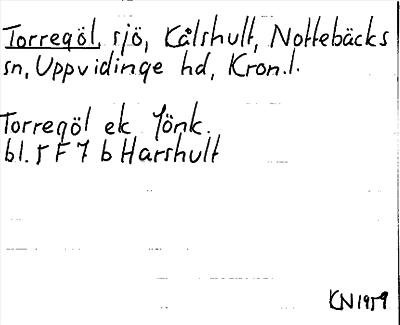 Torregöl, sjö, Kålshult, Nottebäcks
sn, Uppvidinge hd, Kron.l.
Torregöl ek Jönk.
bl. 5 F 7 b Harshult
KN 1959